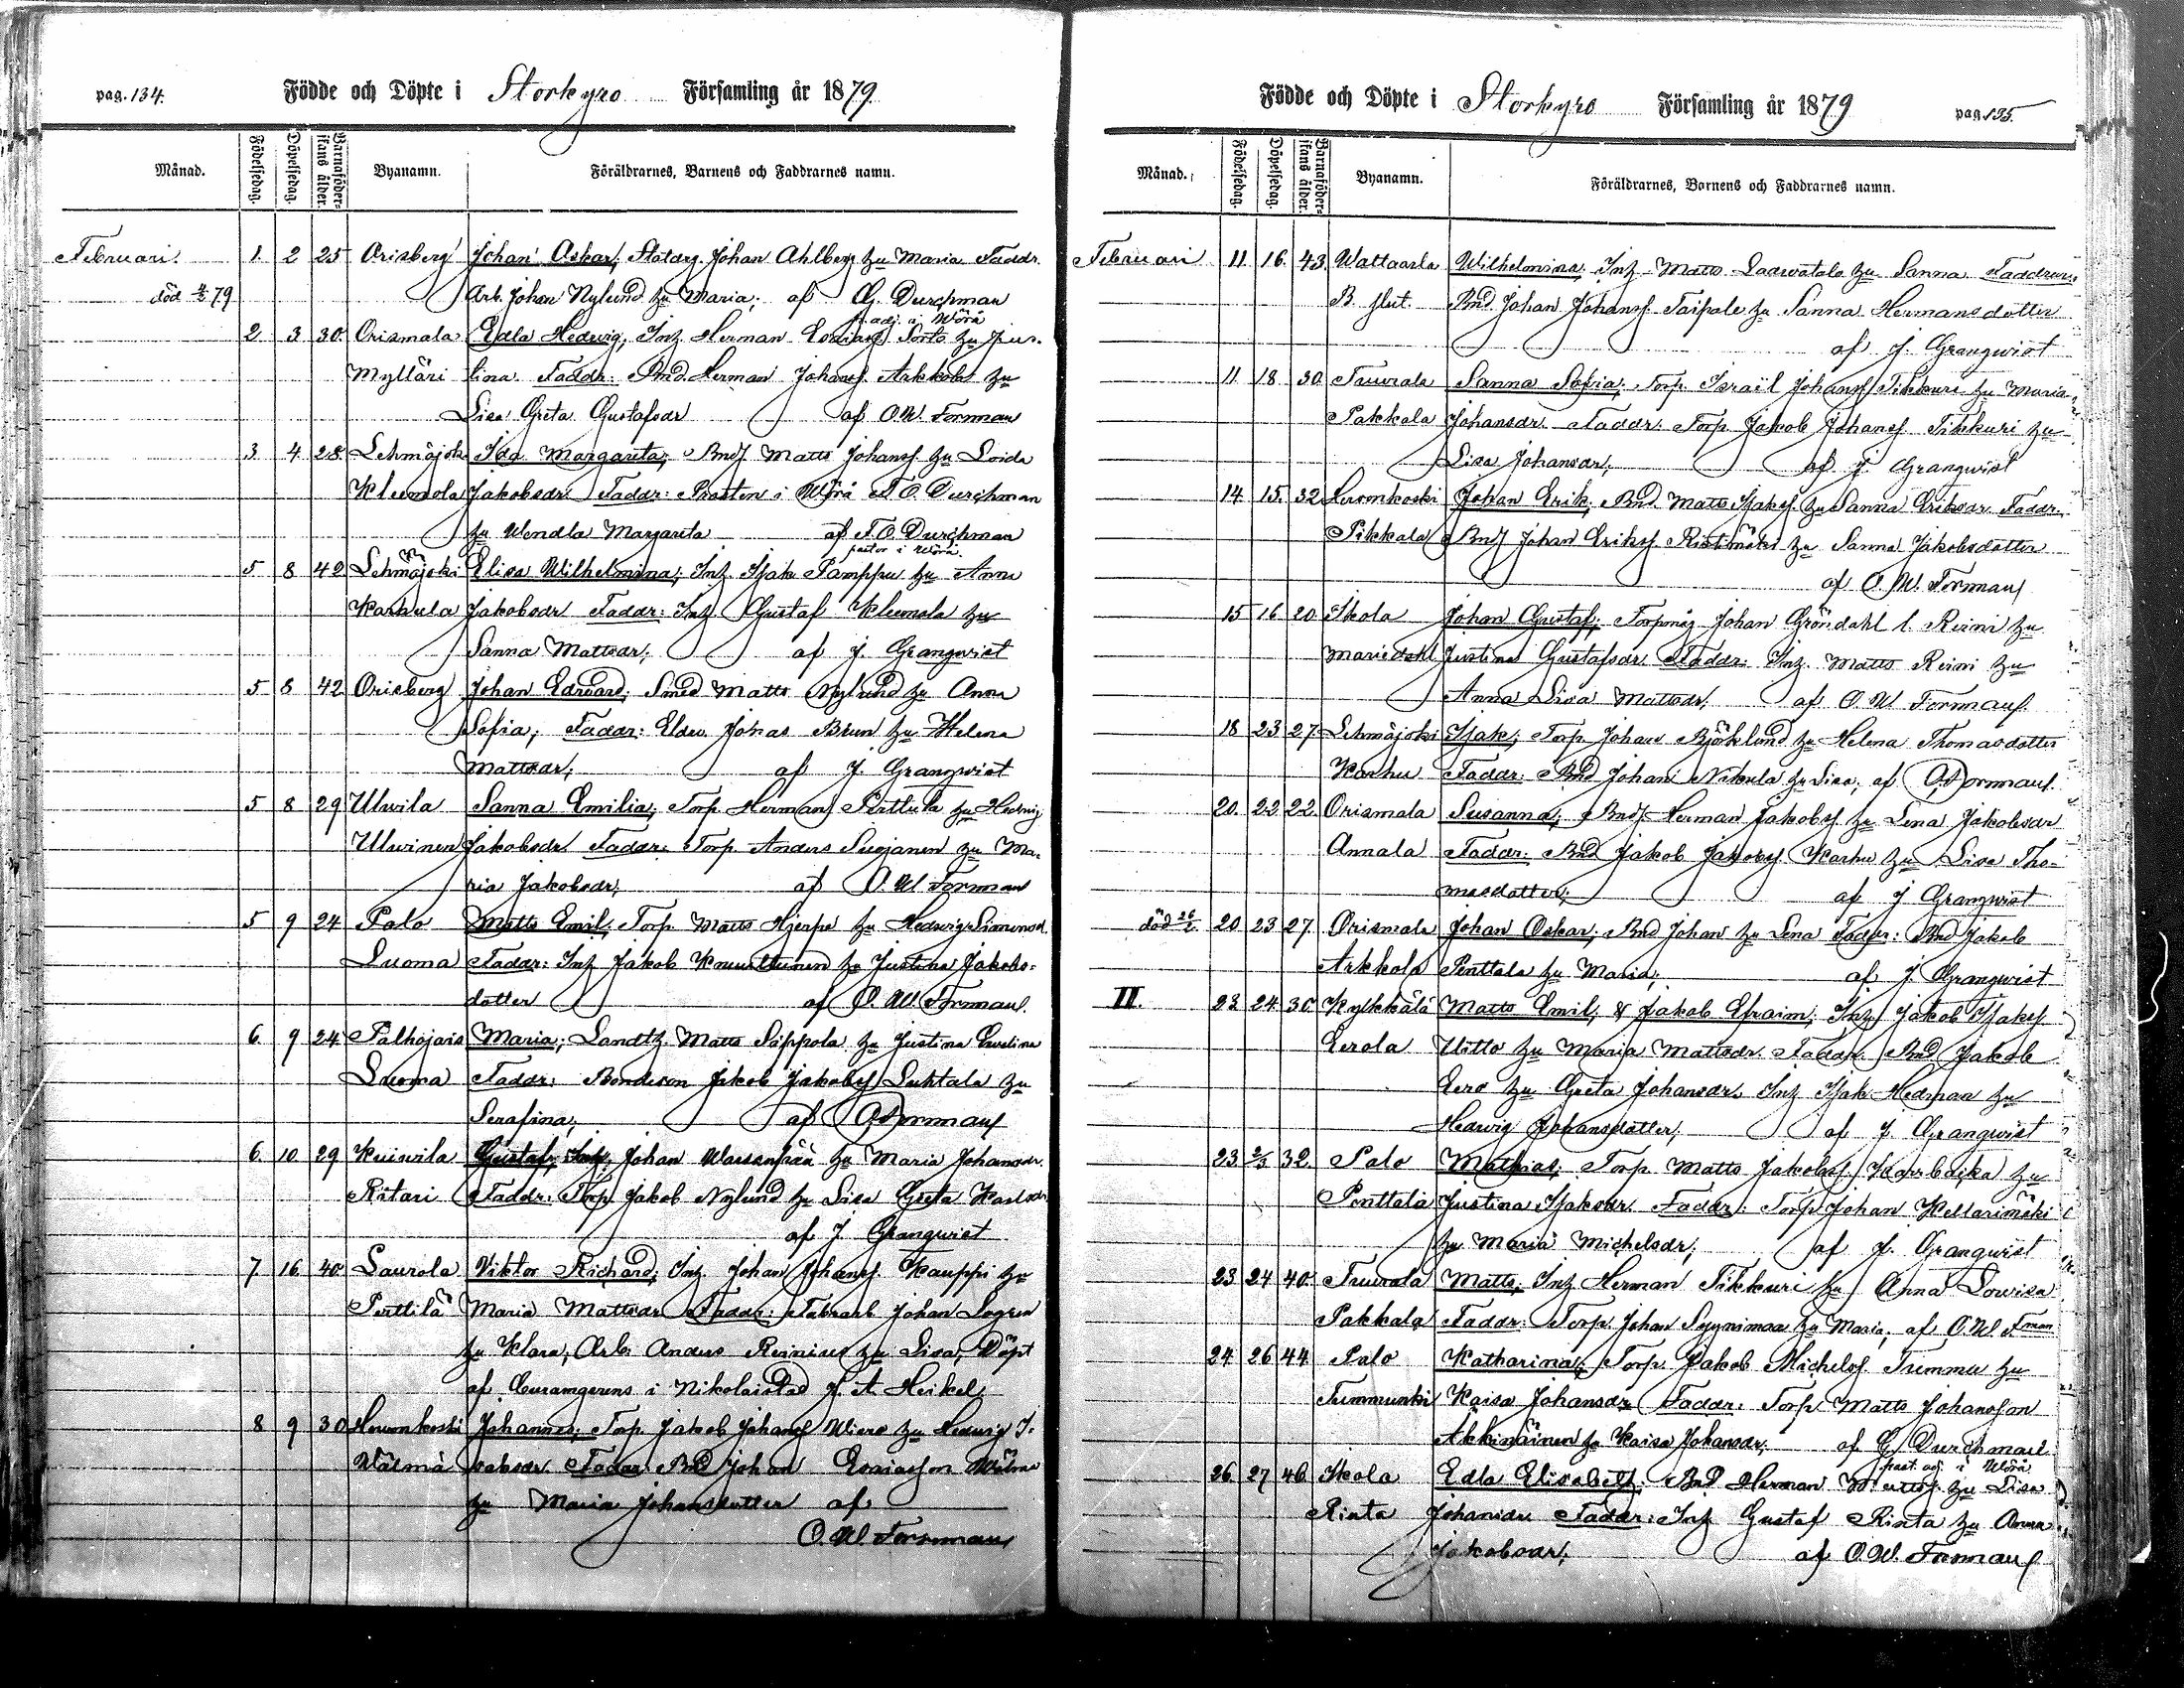 pag. 134. Födde och Döpte i Storkyro Församling år 1879
Månad. Födelsedag. Döpelsedag. Barnaföderskans ålder. Byanamn. Föräldrarnes, Barnens och Faddrarnes namn.
Februari 1. 2 25 Orisberg Johan Oskar, Statdrg. Johan Ahlberg hu Maria Faddr.
död 79 Arb. Johan Nylund hu Maria; af G. Durchman
p. adj. i Wörå
2 3 30. Orismala Edla Hedvig, Inh. Herman Esaiass. Sorto hu Jus-
Mylläri tina. Faddr: Bnd. Herman Johanss. Arkkola hu
Lisa Greta Gustafsdr af O.W. Forsman
3 4 28 Lehmäjoki Ida Margareta; Bnd Matts Johanss. hu Lovisa
Kleemola Jakobsdr. Faddr: Prosten i Wörå F.O. Durchman
hu Wendla Margareta af F.O. Durchman
pastor i Wörå.
5 8 42 Lehmäjoki Elisa Wilhelmina; Inh. Isak Pamppu hu Anna
Kaukula Jakobsdr Faddr: Inh. Gustaf Kleemola hu
Sanna Mattsdr; af J. Granqwist
5 8 42 Orisberg Johan Edvard; Smed Matts Nylund hu Anna
Sofia; Faddr: Eldw. Jonas Brun hu Helena
Mattsdr; af J. Granqwist
5 8 29 Ulwila Sanna Emilia; Torp. Herman Perttula hu Hedvig
Ulwinen Jakobsdr Faddr: Torp Anders Suojanen hu Ma-
ria Jakobsdr; af O.W. Forsman
5 9 24 Palo Matts Emil; Torp. Matts Hjerpe hu Hedvig Simonsd.
Luoma Faddr: Inh. Jakob Knuuttunen hu Justina Jakobs-
dotter af O.W. Forsman.
6. 9 24 Palhojais Maria; Landth. Matts Säppola hu Justina Evelina
Luoma Faddr: Bondeson Jakob Jakobss Luhtala hu
Serafina; af O Forsman
6. 10 29 Kuiwila Gustaf; Inh. Johan Wassenpää hu Maria Johansdr.
Rätäri Faddr: Torp. Jakob Nylund hu Lisa Greta Karlsdr
af J Granqwist
7. 16 40. Laurola Viktor Richard; Inh. Johan Johanss. Kauppi hu
Penttilä Maria Mattsdr Faddr: Fabrarb Johan Logren
hu Klara, Arb. Anders Reinius hu Lisa; Döpt
af i Nikolaistad J. A. Heikel
8 9 30 Herronkoski Johannes; Torp Jakob Johanss Wiero hu Hedvig I-
Wälmä saksdr. Faddr Bnd Johan Esaiasson Wälmä
hu Maria Johansdotter af
O.W. Forsman
Födde och Döpte i Storkyro Församling år 1879 pag. 135.
Månad. Födelsedag. Döpelsedag. Barnaföderskans ålder. Byanamn. Föräldrarnes, Barnens och Faddrarnes namn.
Februari 11. 16. 43 Wattaarla Wilhelmina; Inh. Matts Laawatalo hu Sanna Faddrar:
B. flut. Bnd Johan Johanss Taipale hu Sanna Hermansdotter
af J. Granqwist
11. 18. 30 Tuurala Sanna Sofia; Torp. Israël Johanss Tikkuri hu Maria
Pakkala Johansdr. Faddr: Torp. Jakob Johanss. Tikkuri hu
Lisa Johansdr; af J. Granqwist
14. 15. 32 Herronkoski Johan Erik; Bnd. Matts Isakss. hu Sanna Eriksdr Faddr:
Pikkala Bnd Johan Erikss. Ristimäki hu Sanna Jakobsdotter
af O.W. Forsman
15 16 20 Ikola Johan Gustaf; Torpmåg Johan Gröndahl l. Reini hu
Mariedahl Justina Gustafsdr. Faddr: Inh. Matts Reini hu
Anna Lisa Mattsdr, af O.W Forsman.
18 23 27 Lehmäjoki Isak; Torp Johan Björklund hu Helena Thomasdotter
Karhu Faddr: Bnd Johan Nikula hu Lisa; af O Forsman.
20. 22 22 Orismala Susanna; Bnd Herman Jakobss hu Lena Jakobsdr
Annala Faddr: Bnd Jakob Jakobss. Karhu hu Lisa Tho-
masdotter; af J Granqwist
död 26/2 20 23 27 Orismala Johan Oskar; Bnd Johan hu Lena Faddr: Bnd Jakob
Arkkola Penttala hu Maria; af J. Granqwist
II. 23 24 30. Kylkkälä Matts Emil; & Jakob Efraim; Inh. Jakob Isakss
Eerola Uitto hu Maria Mattsdr. Faddr: Bnd Jakob
Eero hu Greta Johansdr. Inh Isak Hedman hu
Hedvig Johansdotter; af J. Granqwist
23 2/3 32 Palo Mathias; Torp. Matts Jakobss. Karrbacka hu
Penttala Justina Isaksdr. Faddr: Torp Johan Kellarimäki
hu Maria Michelsdr; af J. Granqwist
23 24 40. Tuurala Matts; Inh Herman Tikkuri hu Anna Lowisa
Pakkala Faddr: Torp. Johan Syynimaa hu Maria; af O.W Fman
24 26 44 Palo Katharina; Torp. Jakob Michelss. Tummu hu
Tummunki Kaisa Johansdr Faddr: Torp. Matts Johansson
Akkinäinen hu Kaisa Johansdr; af G. Durchman
past. adj. i Wörå
26 27 46 Ikola Edla Elisabeth; Bnd Herman Mattss. hu Lisa
Rinta Johansdr Faddr: Inh Gustaf Rinta hu Anna
Jakobsdr; af O.W. Forsman